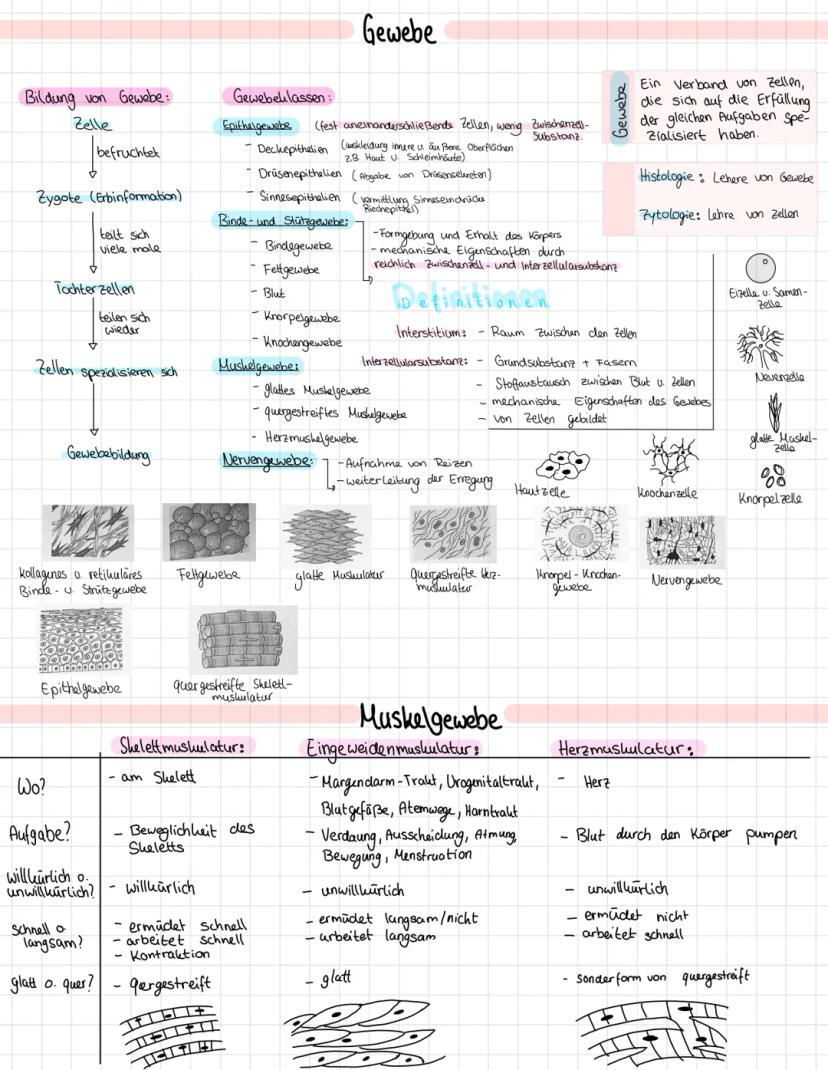 Gewebe
Bildung von Gewebe:
Zelle
befruchtet
Zygote (Erbinformation)
teilt sich
viele male
Tochterzellen
teilen sich
wieder
Zellen spezialisieren sich
Gewebebildung
Gewebeklassen:
Epithelgewebe (fest aneinanderschließende Zellen, wenig Zwischenzell-
substanz.
- Deckepithelien (auskleidung innere u. äußere Oberflächen
z.B Haut u. Schleimhäute)
- Drüsenepithelien (Abgabe von Drüsensekreten)
- Sinnesepithelien (vermittlung Sinneseindrücke
Riechepithel)
Binde- und Stützgewebe:
- Formgebung und Erhalt des Körpers
- mechanische Eigenschaften durch
reichlich Zwischenzell- und Interzellularsubstanz
- Bindegewebe
- Fettgewebe
- Blut
- Knorpelgewebe
- Knochengewebe
Muskelgewebe:
- glattes Muskelgewebe
- quergestreiftes Muskelgewebe
- Herzmuskelgewebe
Nervengewebe:
- Aufnahme von Reizen
- weiterleitung der Erregung
Gewebe
Ein Verband von Zellen,
die sich auf die Erfüllung
der gleichen Aufgaben spe-
zialisiert haben.
Histologie: Lehere von Gewebe
Zytologie: Lehre von Zellen
Definitionen
Interstitium: - Raum zwischen den Zellen
Interzellularsubstanz: - Grundsubstanz + Fasern
- Stoffaustausch zwischen Blut u. Zellen
- mechanische Eigenschaften des Gewebes
- von Zellen gebildet
Eizelle u. Samen-
zelle
Nevenzelle
glatte Muskel-
zelle
Knorpelzelle
Hautzelle
Knochenzelle
kollagenes u. retikuläres
Binde- u. Strützgewebe
Fettgewebe
glatte Muskulatur
Quergestreifte Herz-
muskulatur
Knorpel-Knochen-
gewebe
Nervengewebe
Epithelgewebe
quergestreifte Skelett-
muskulatur
Muskelgewebe
Skelettmuskulatur:
Eingeweidenmuskulatur:
Herzmuskulatur:
Wo?
- am Skelett
- Margendarm-Trakt, Urogenitaltrakt,
Blutgefäße, Atemwege, Harntrakt
- Herz
Aufgabe?
- Beweglichkeit des
Skeletts
- Verdaung, Ausscheidung, Atmung,
Bewegung, Menstruation
- Blut durch den Körper pumpen
willkürlich o.
unwillkürlich?
- willkürlich
- unwillkürlich
- unwillkürlich
schnell o
langsam?
- ermüdet schnell
- arbeitet schnell
- Kontraktion
- ermüdet langsam/nicht
- arbeitet langsam
- ermüdet nicht
- arbeitet schnell
glatt o. quer?
- qergestreift
- glatt
- sonderform von quergestreift